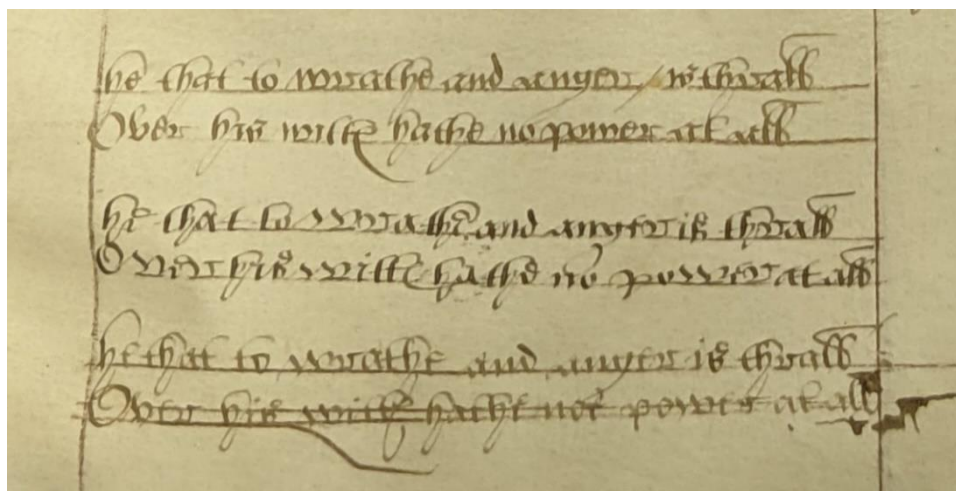 he that to wrathe and anger is thrall
Over his wille hathe no power at all
he that to wrathe and anger is thrall
Over his wille hathe no power at all
he that to wrathe and anger is thrall
Over his wille hathe not power at all